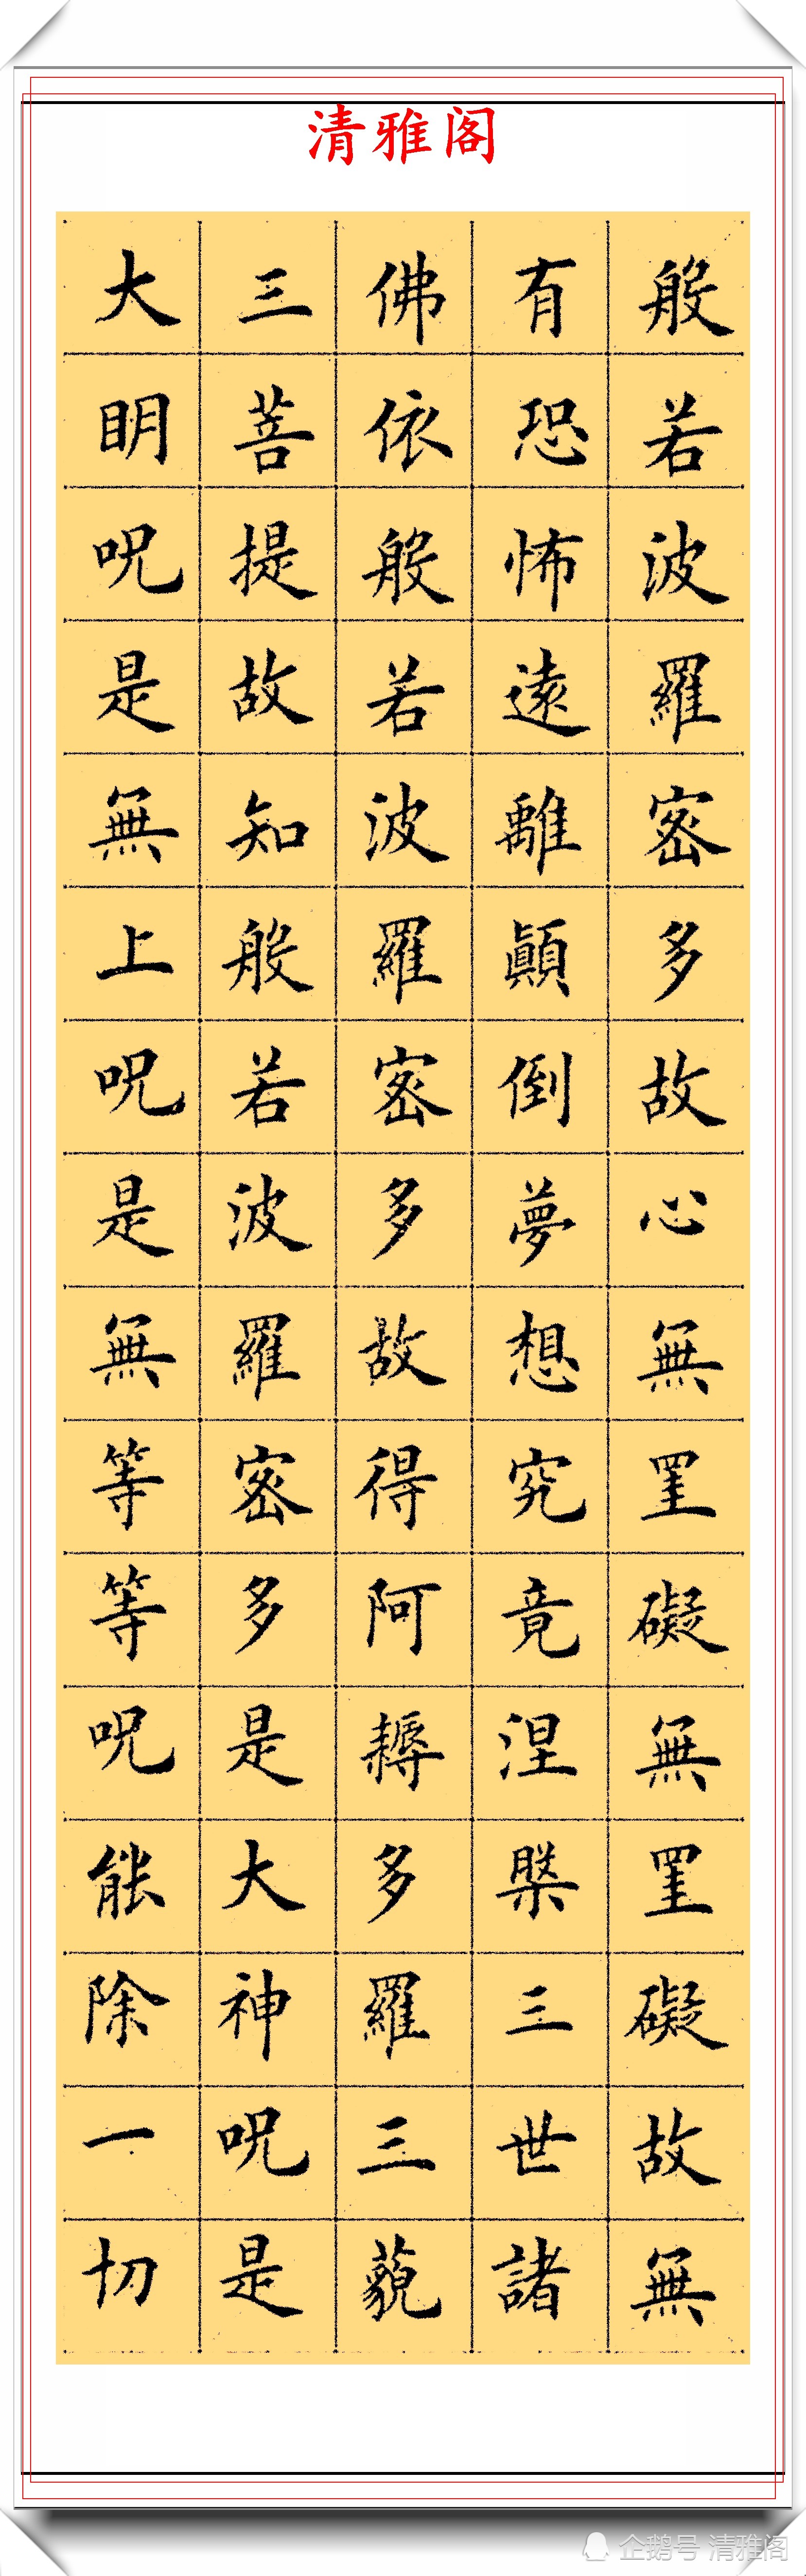 清雅阁
般若波羅密多故心無罣礙無罣礙故無
有恐怖遠離顛倒夢想究竟涅槃三世諸
佛依般若波羅密多故得阿耨多羅三藐
三菩提故知般若波羅密多是大神呪是
大明呪是無上呪是無等等呪能除一切
企鹅号 清雅阁